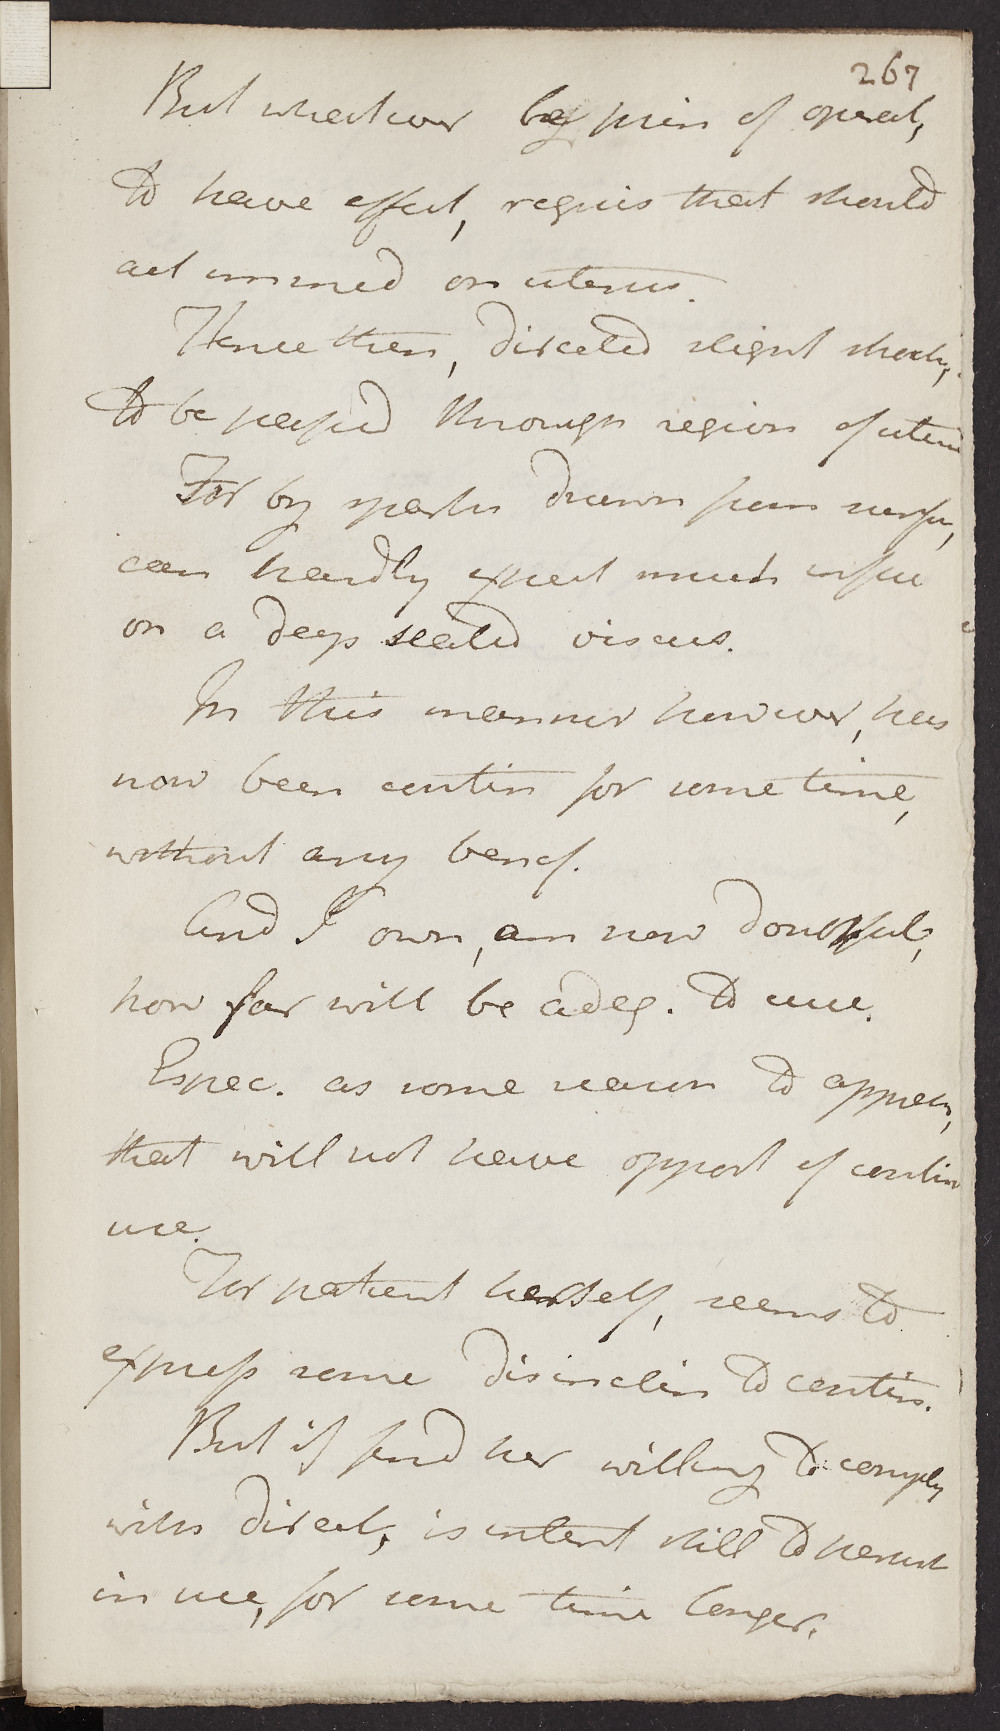 267
But whatever be prin of operat,
to have effect, requis that should
act immed on uterus.
Hence then, directed slight shocks,
to be passed through region of uteru
For by sparks drawn from surfa,
can hardly expect much influ
on a deep seated viscus.
In this manner however, has
now been contin for some time,
without any benef.
And I own, am now doubtful,
how far will be adeq. to cure.
Espec. as some reason to appreh,
that will not have opport of contin
use.
For patient herself, seems to
express some disinclin to contin.
But if find her willing to comply
with direct, is intent still to persist
in use, for some time longer.